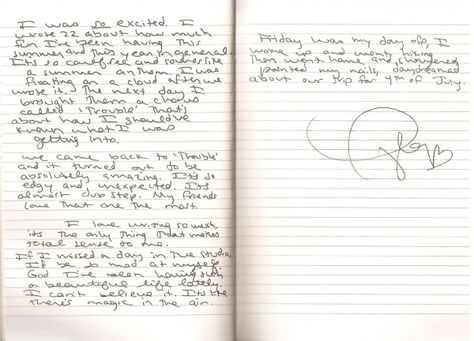 I was so excited. I
wrote 22 about how much
fun I've been having this
summer and this year in general.
It's so carefree and sounds like
a summer anthem. I was
floating on a cloud after we
wrote it. The next day I
brought them a chorus
called 'Trouble' that's
about how I should've
known what I was
getting into.
We came back to 'Trouble'
and it turned out to be
absolutely amazing. It's so
edgy and unexpected. It's
almost dub step. My friends
love that one the most
I love writing so much
its the only thing that makes
total sense to me.
If I missed a day in the studio,
I'd be so mad at myself.
God I've been having such
a beautiful life lately.
I can't believe it. It's like
there's magic in the air.
Friday was my day off, I
woke up and went hiking
Then went home and showered
painted my nails, daydreamed
about our trip for 4th of July.